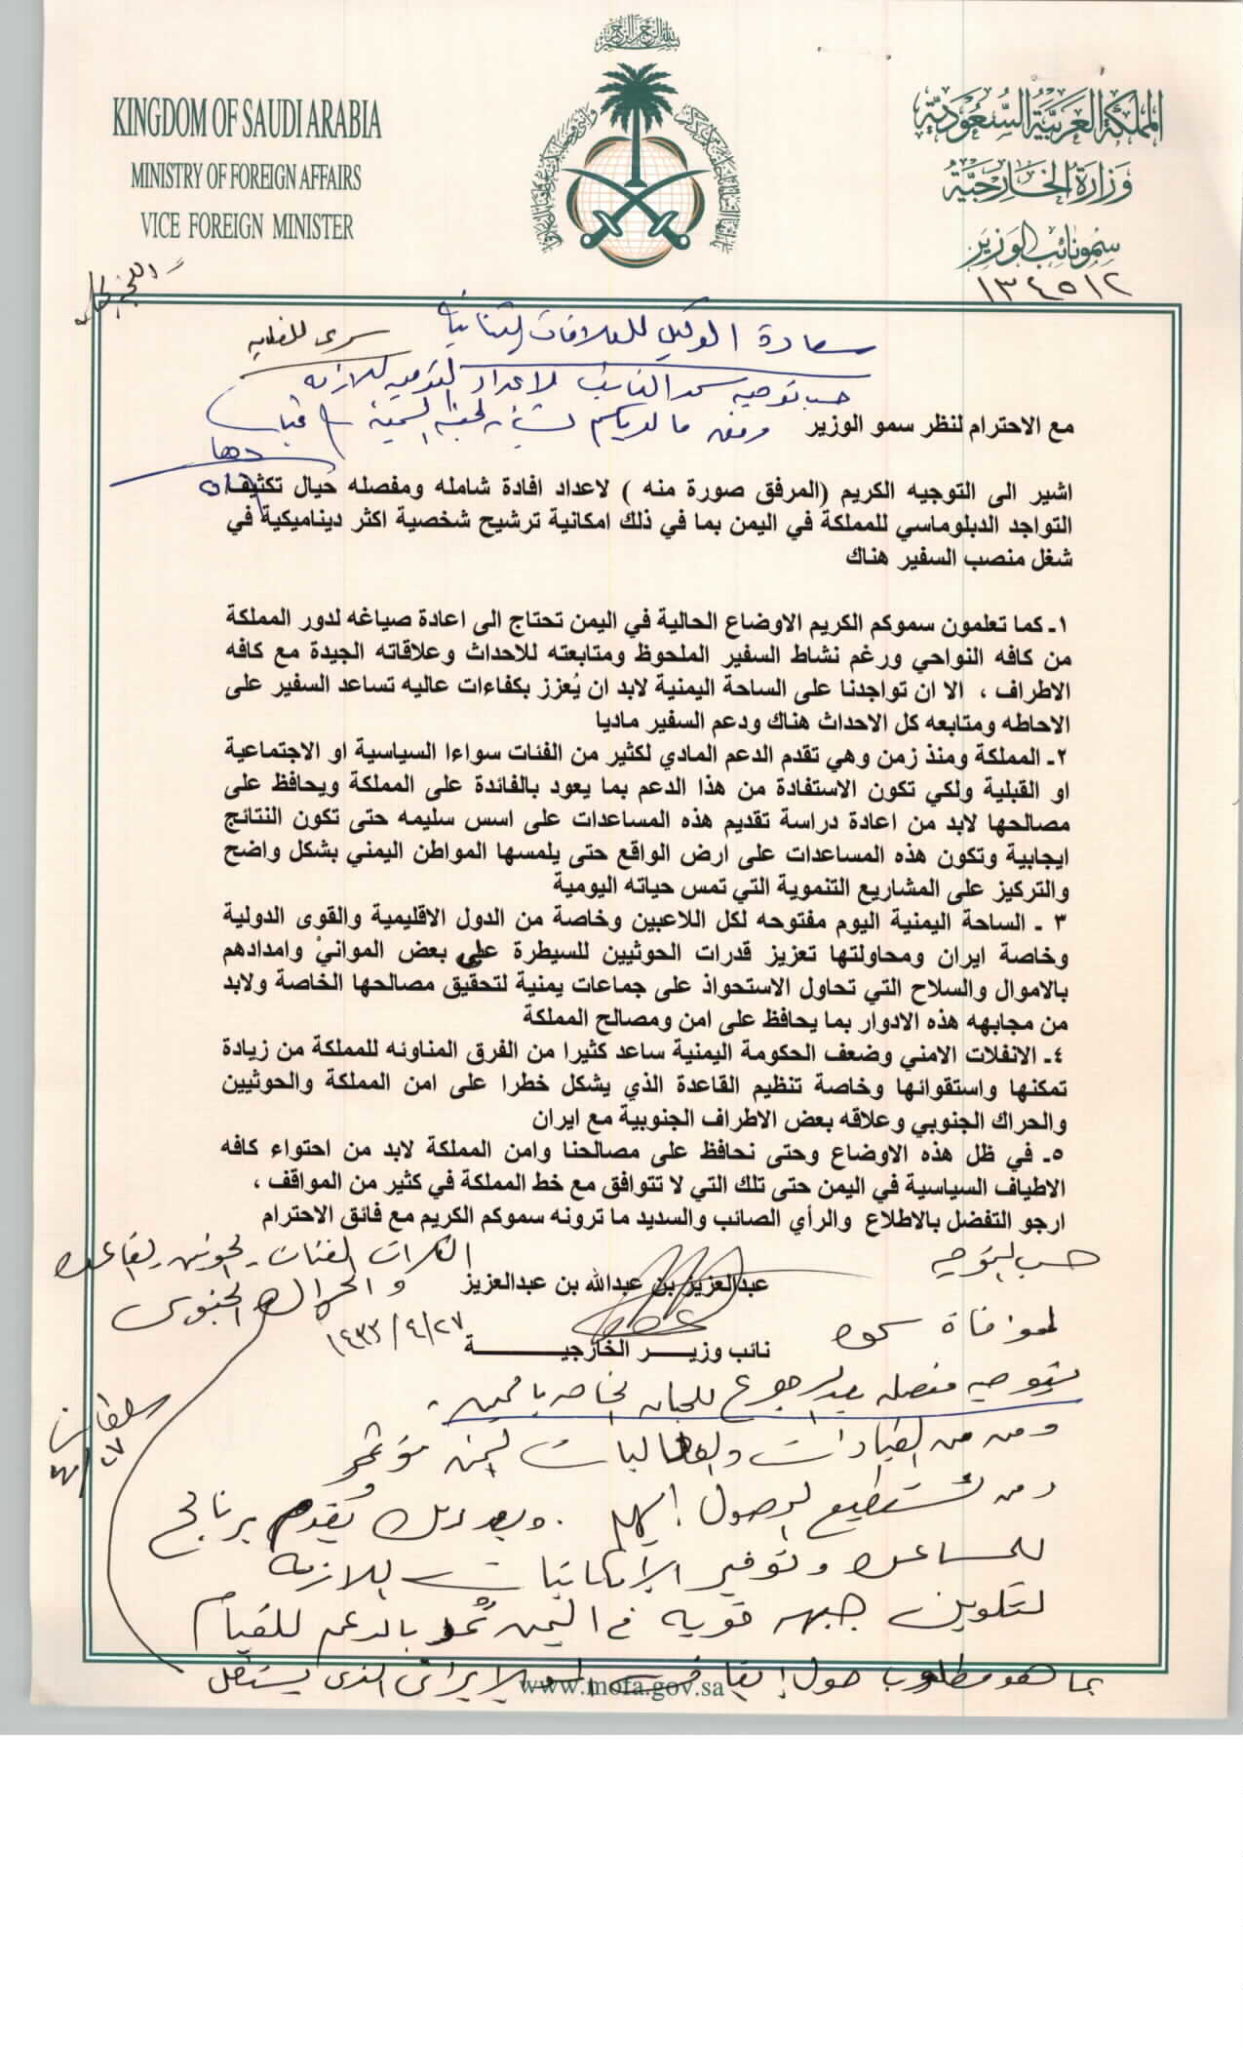 KINGDOM OF SAUDI ARABIA
MINISTRY OF FOREIGN AFFAIRS
VICE FOREIGN MINISTER
المملكة العربية السعودية
وزارة الخارجية
سمو نائب الوزير
١٣٤٥١٢
سعادة الوكيل للعلاقات الثنائية
سري للغاية
حسب توجيه سمو النائب لاعداد التوصيه اللازمه
مع الاحترام لنظر سمو الوزير
اشير الى التوجيه الكريم (المرفق صورة منه ) لاعداد افادة شامله ومفصله حيال تكثيف
التواجد الدبلوماسي للمملكة في اليمن بما في ذلك امكانية ترشيح شخصية اكثر ديناميكية في
شغل منصب السفير هناك
١ـ كما تعلمون سموكم الكريم الاوضاع الحالية في اليمن تحتاج الى اعادة صياغه لدور المملكة
من كافه النواحي ورغم نشاط السفير الملحوظ ومتابعته للاحداث وعلاقاته الجيدة مع كافه
الاطراف ، الا ان تواجدنا على الساحة اليمنية لابد ان يُعزز بكفاءات عاليه تساعد السفير على
الاحاطه ومتابعه كل الاحداث هناك ودعم السفير ماديا
٢ـ المملكة ومنذ زمن وهي تقدم الدعم المادي لكثير من الفئات سواءا السياسية او الاجتماعية
او القبلية ولكي تكون الاستفادة من هذا الدعم بما يعود بالفائدة على المملكة ويحافظ على
مصالحها لابد من اعادة دراسة تقديم هذه المساعدات على اسس سليمه حتى تكون النتائج
ايجابية وتكون هذه المساعدات على ارض الواقع حتى يلمسها المواطن اليمني بشكل واضح
والتركيز على المشاريع التنموية التي تمس حياته اليومية
٣ ـ الساحة اليمنية اليوم مفتوحه لكل اللاعبين وخاصة من الدول الاقليمية والقوى الدولية
وخاصة ايران ومحاولتها تعزيز قدرات الحوثيين للسيطرة على بعض الموانئ وامدادهم
بالاموال والسلاح التي تحاول الاستحواذ على جماعات يمنية لتحقيق مصالحها الخاصة ولابد
من مجابهه هذه الادوار بما يحافظ على امن ومصالح المملكة
٤ـ الانفلات الامني وضعف الحكومة اليمنية ساعد كثيرا من الفرق المناونه للمملكة من زيادة
تمكنها واستقوائها وخاصة تنظيم القاعدة الذي يشكل خطرا على امن المملكة والحوثيين
والحراك الجنوبي وعلاقه بعض الاطراف الجنوبية مع ايران
٥ـ في ظل هذه الاوضاع وحتى نحافظ على مصالحنا وامن المملكة لابد من احتواء كافه
الاطياف السياسية في اليمن حتى تلك التي لا تتوافق مع خط المملكة في كثير من المواقف ،
ارجو التفضل بالاطلاع والرأي الصائب والسديد ما ترونه سموكم الكريم مع فائق الاحترام
حسب التوجيه
والحراك الجنوبي
عبدالعزيز بن عبدالله بن عبدالعزيز
لموافاة سموه
نائب وزيـــر الخارجيـــــــة
١٤٣٣/٤/٢٧
بتوصيه مفصله بعد الرجوع للجان الخاصه باليمن
ومن من القيادات
ومن نستطيع الوصول إليهم . وبعد ذلك يُقدم برنامج
للمساعده وتوفير الإمكانيات اللازمه
لتكوين جبهه قويه في اليمن تُمد بالدعم للقيام
بما هو مطلوب حول إيقاف الإيراني الذي يستغل
www.mofa.gov.sa